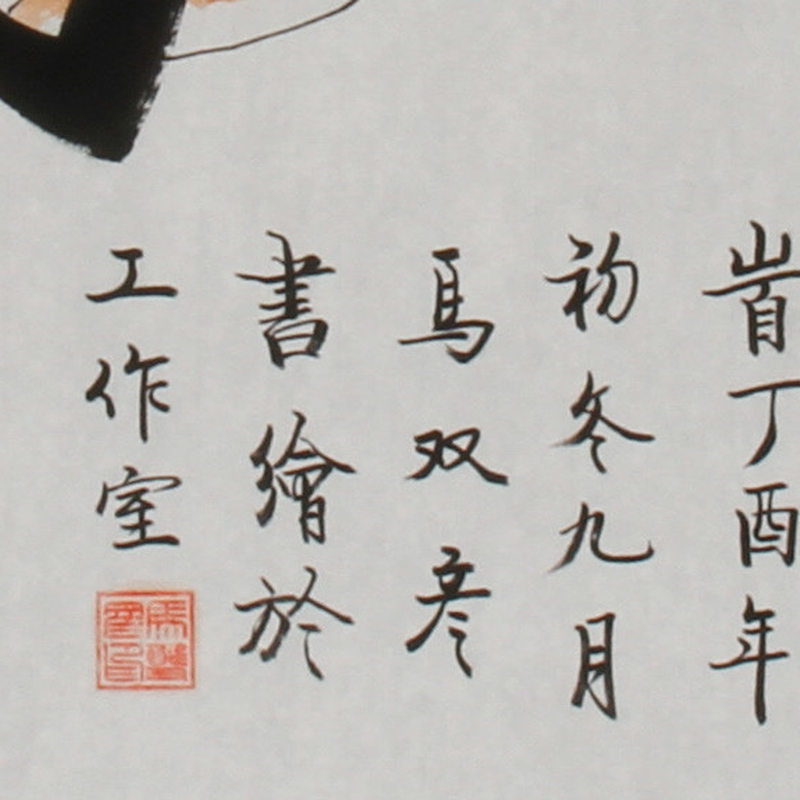 旹丁酉年
初冬九月
馬双彦
書繪於
工作室